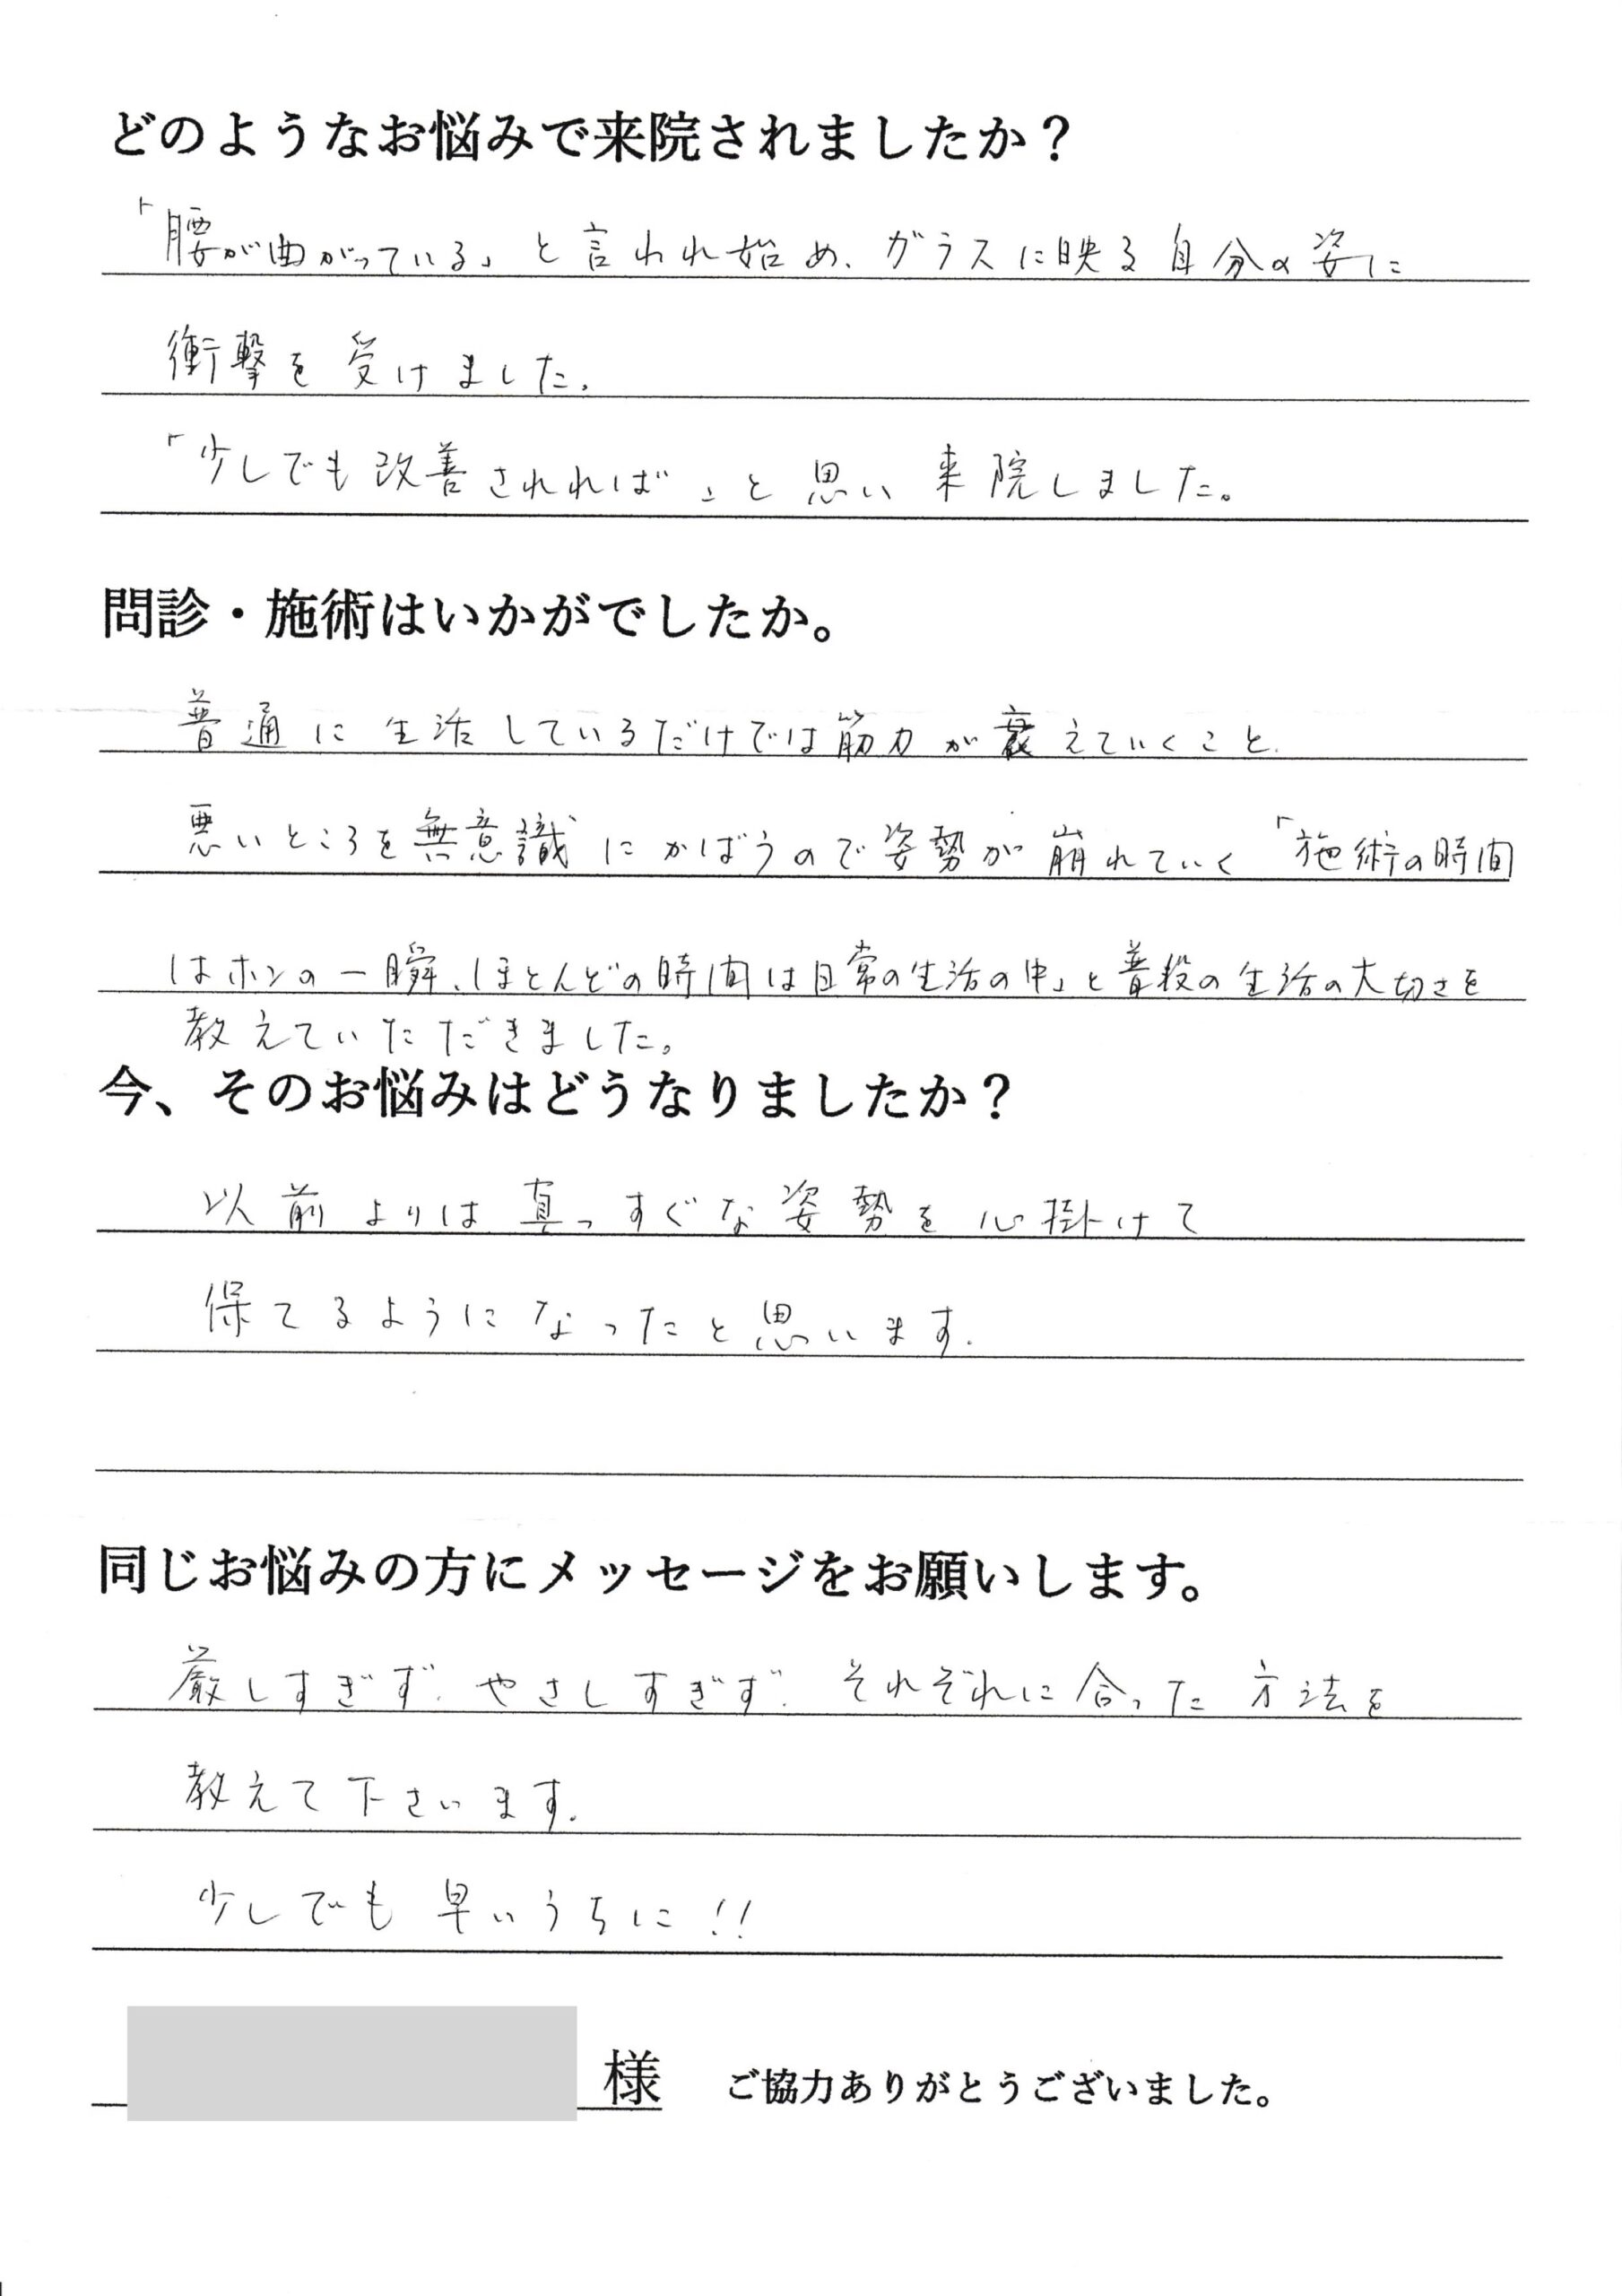 どのようなお悩みで来院されましたか？
「腰が曲がっている」と言われ始め、ガラスに映る自分の姿に
衝撃を受けました。
「少しでも改善されれば」と思い来院しました。
問診・施術はいかがでしたか。
普通に生活しているだけでは筋力が衰えていくこと、
悪いところを無意識にかばうので姿勢が崩れていく「施術の時間
はホンの一瞬、ほとんどの時間は日常の生活の中」と普段の生活の大切さを
教えていただきました。
今、そのお悩みはどうなりましたか？
以前よりは真っすぐな姿勢を心掛けて
保てるようになったと思います。
同じお悩みの方にメッセージをお願いします。
厳しすぎず、やさしすぎず、それぞれに合った方法を
教えて下さいます。
少しでも早いうちに!!
様 ご協力ありがとうございました。